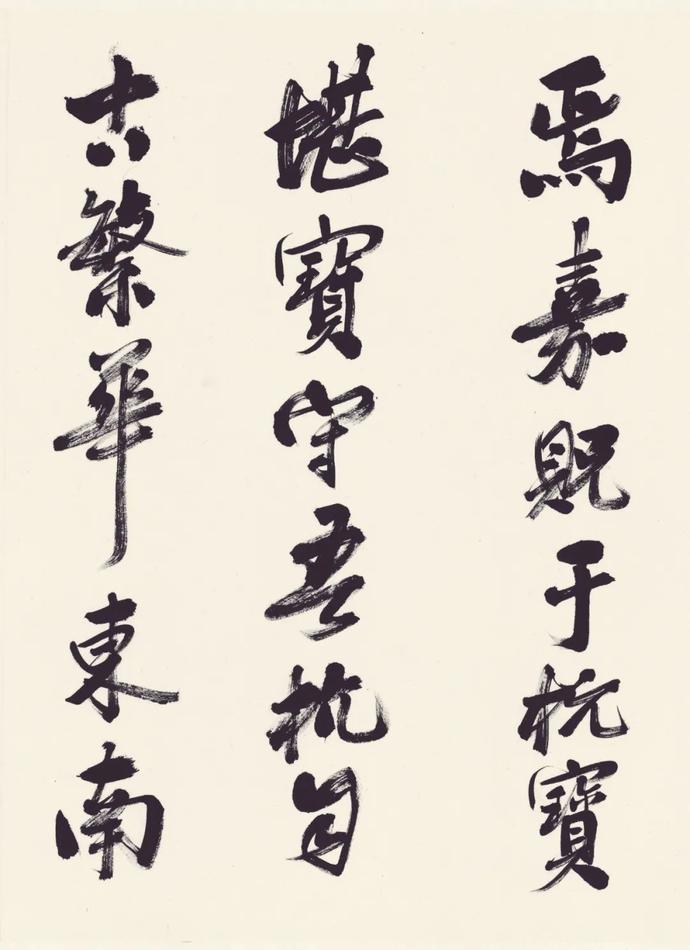 焉嘉贶于杭寶
堪寶守吾杭自
古繁華東南